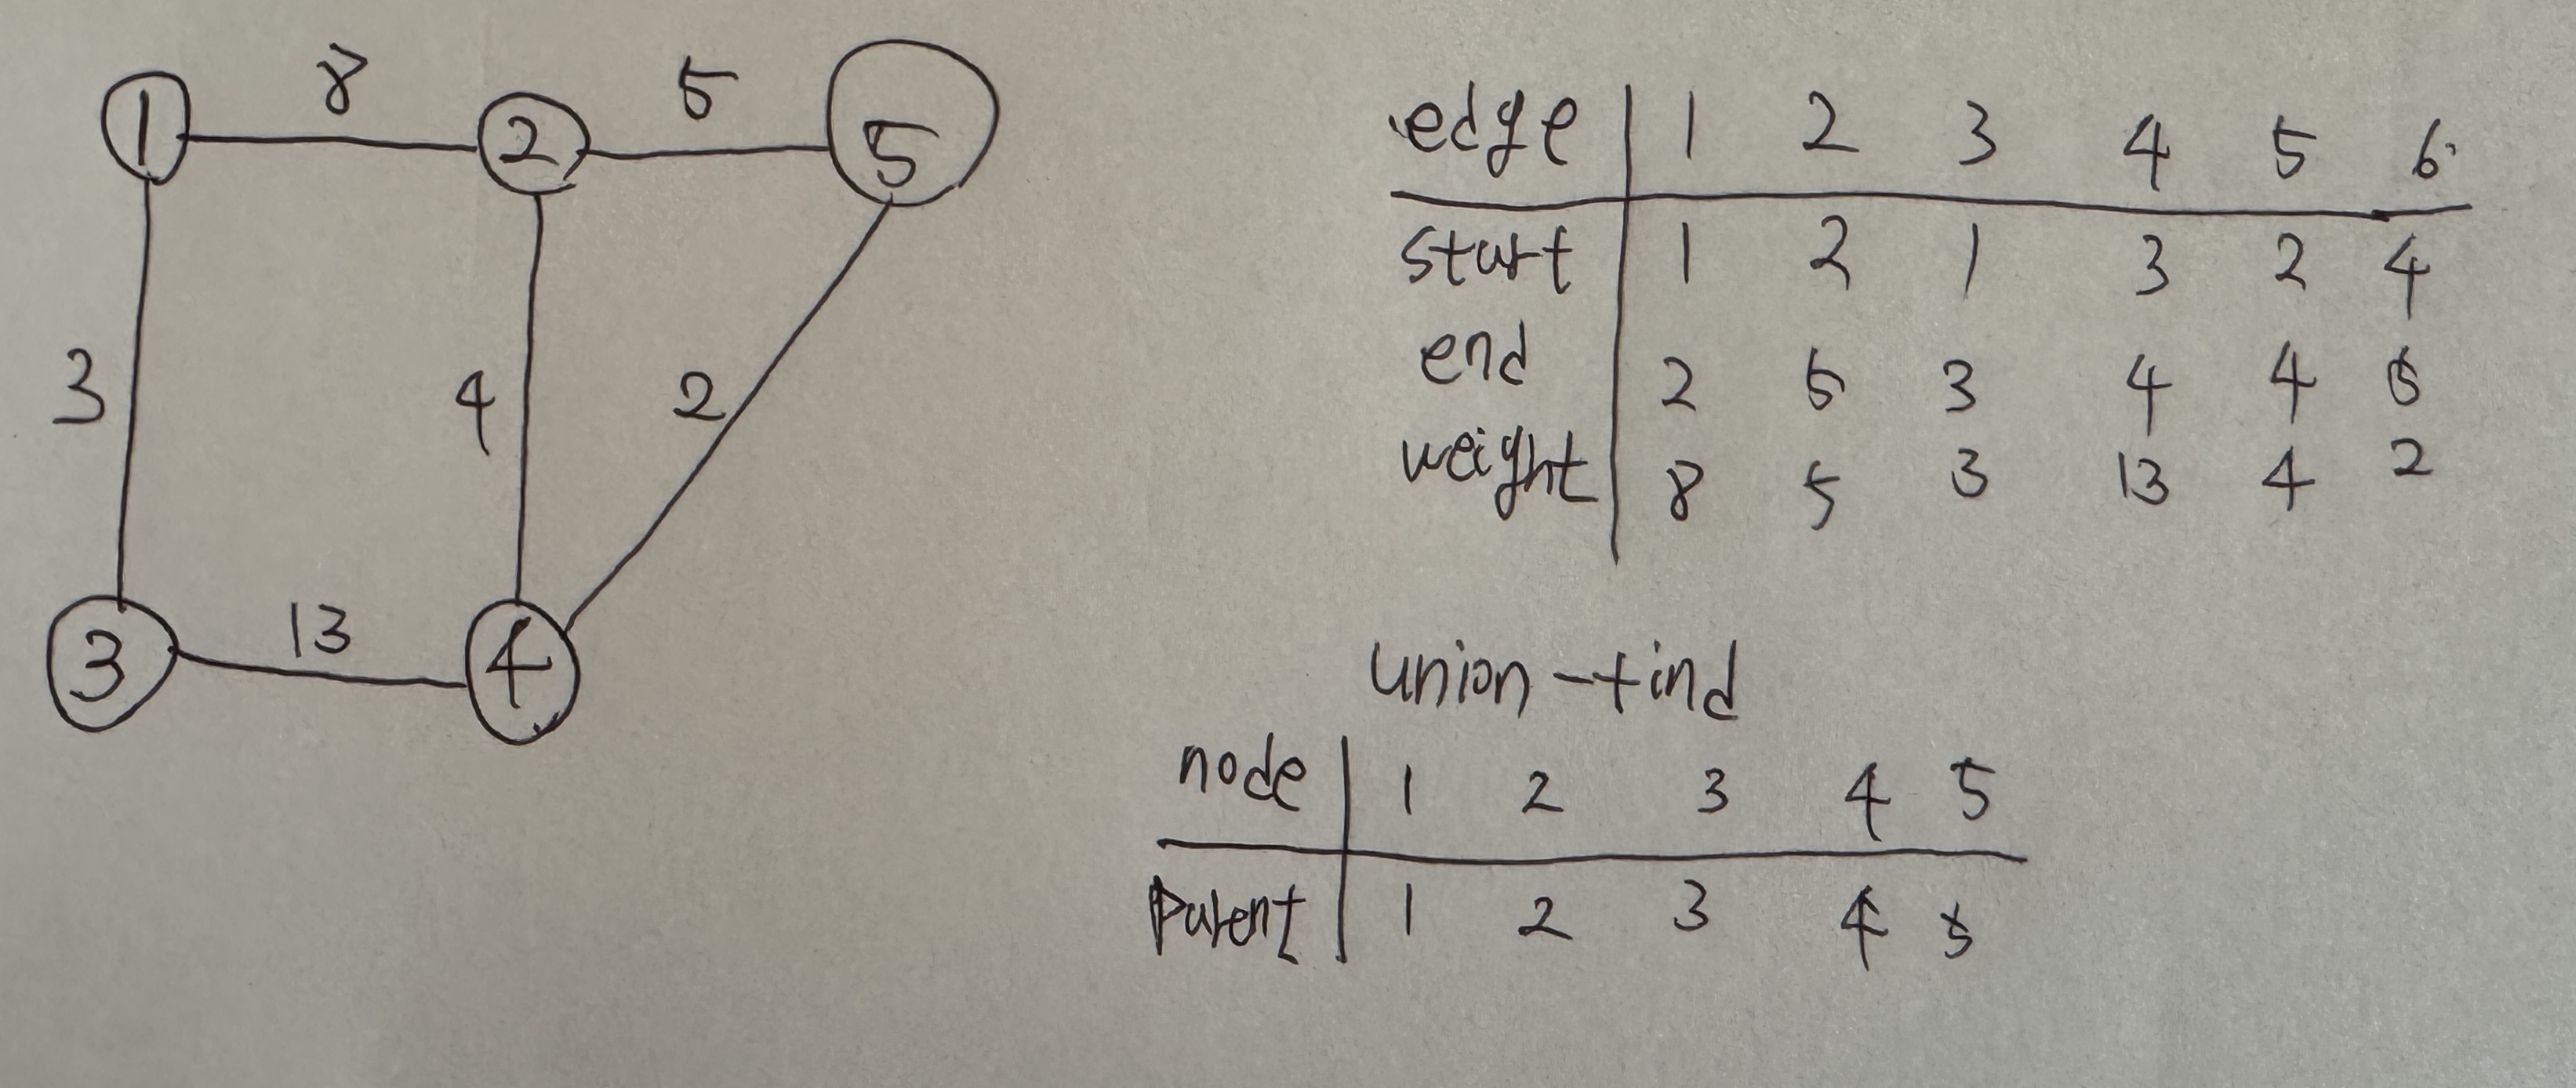 8
5
1
2
5
3
4
2
3
13
4
edge 1 2 3 4 5 6
start 1 2 1 3 2 4
end 2 5 3 4 4 5
weight 8 5 3 13 4 2
union-find
node 1 2 3 4 5
Parent 1 2 3 4 5